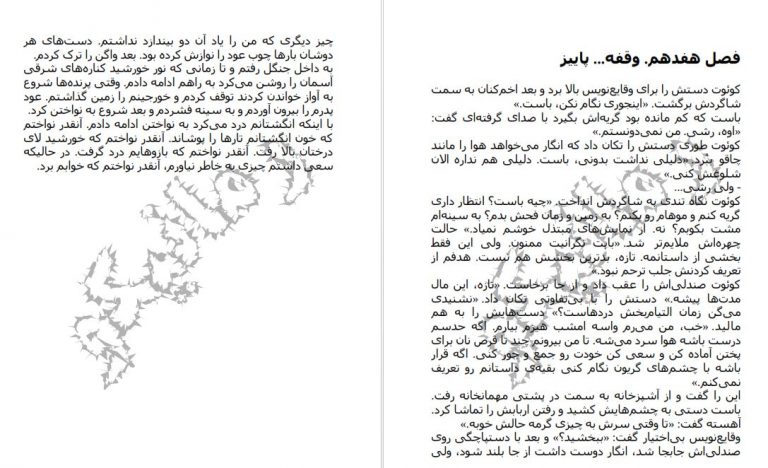 فصل هفدهم. وقفه... پاییز
کوئوت دستش را برای وقایع‌نویس بالا برد و بعد اخم‌کنان به سمت
شاگردش برگشت. «اینجوری نگام نکن، باست.»
باست که کم مانده بود گریه‌اش بگیرد با صدای گرفته‌ای گفت:
«اوه، رشی. من نمی‌دونستم.»
کوئوت طوری دستش را تکان داد که انگار می‌خواهد هوا را مانند
چاقو ببرد. «دلیلی نداشت بدونی، باست. دلیلی هم نداره الان
شلوغش کنی.»
- ولی رشی...
کوئوت نگاه تندی به شاگردش انداخت. «چیه باست؟ انتظار داری
گریه کنم و موهام رو بکنم؟ به زمین و زمان فحش بدم؟ به سینه‌ام
مشت بکوبم؟ نه. از نمایش‌های مبتذل خوشم نمیاد.» حالت
چهره‌اش ملایم‌تر شد. «بابت نگرانیت ممنون. ولی این فقط
بخشی از داستانمه. تازه، بدترین بخشش هم نیست. هدفم از
تعریف کردنش جلب ترحم نبود.»
کوئوت صندلی‌اش را عقب داد و از جا برخاست. «تازه، این مال
مدت‌ها پیشه.» دستش را با بی‌تفاوتی تکان داد. «نشنیدی
می‌گن زمان التیام‌بخش دردهاست؟» دست‌هایش را به هم
مالید. «خب، من می‌رم واسه امشب هیزم بیارم. اگه حدسم
درست باشه هوا سرد می‌شه. تا من بیرونم چند تا قرص نان برای
پختن آماده کن و سعی کن خودت رو جمع و جور کنی. اگه قرار
باشه با چشم‌های گریون نگام کنی بقیه‌ی داستانم رو تعریف
نمی‌کنم.»
این را گفت و از آشپزخانه به سمت در پشتی مهمانخانه رفت.
باست دستی به چشم‌هایش کشید و رفتن اربابش را تماشا کرد.
آهسته گفت: «تا وقتی سرش به چیزی گرمه حالش خوبه.»
وقایع‌نویس بی‌اختیار گفت: «ببخشید؟» و بعد با دستپاچگی روی
صندلی‌اش جابجا شد، انگار دوست داشت از جا بلند شود، ولی
چیز دیگری که من را یاد آن دو بیندازد نداشتم. دست‌های هر
دوشان بارها چوب عود را نوازش کرده بود. بعد واگن را ترک کردم.
به داخل جنگل رفتم و تا زمانی که نور خورشید کناره‌های شرقی
آسمان را روشن می‌کرد به راهم ادامه دادم. وقتی پرنده‌ها شروع
به آواز خواندن کردند توقف کردم و خورجینم را زمین گذاشتم. عود
پدرم را بیرون آوردم و به سینه فشردم و بعد شروع به نواختن کرد.
با اینکه انگشتانم درد می‌کرد به نواختن ادامه دادم. آنقدر نواختم
که خون انگشتانم تارها را پوشاند. آنقدر نواختم که خورشید لای
درختان بالا رفت. آنقدر نواختم که بازوهایم درد گرفت. در حالیکه
سعی داشتم چیزی به خاطر نیاورم، آنقدر نواختم که خوابم برد.